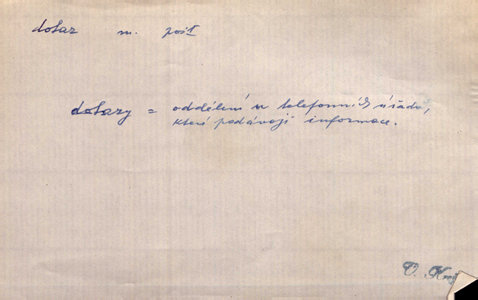 dotaz m. pošt
dotazy = oddělení u telefonních úřadů,
které podávají informace.